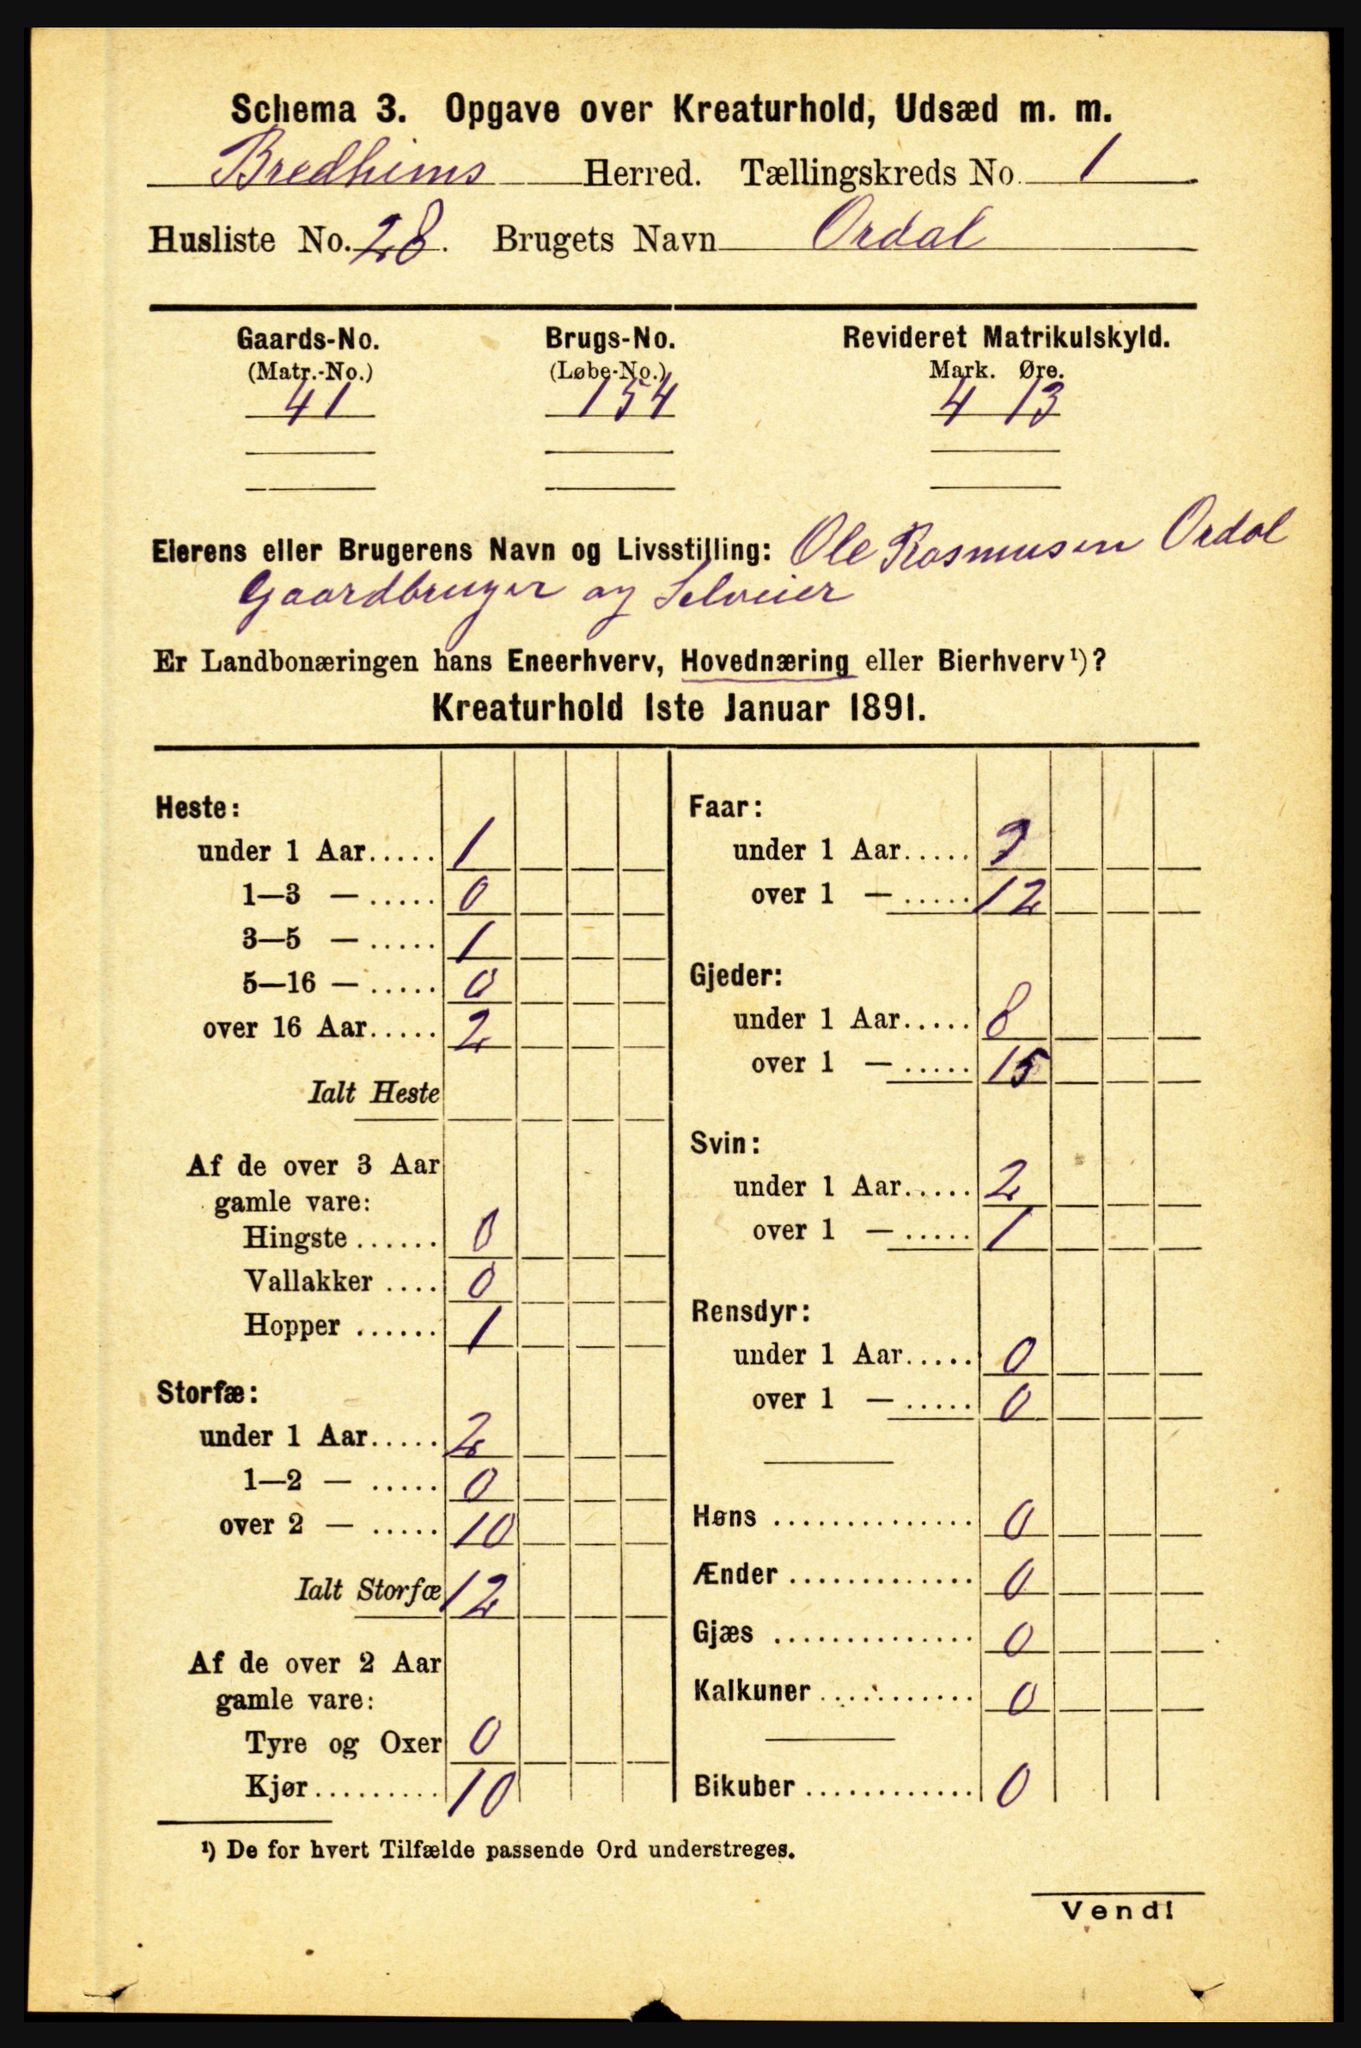 Schema 3. Opgave over Kreaturhold, Udsæd m. m.
Bredheims Herred. Tællingskreds No. 1
Husliste No. 28. Brugets Navn Ordal
Gaards-No. Brugs-No. Revideret Matrikulskyld.
(Matr.-No.) (Løbe-No.) Mark. Øre.
41 154 4 13
Eierens eller Brugerens Navn og Livsstilling: Ole Rasmusen Ordal
Gaardbruger og Selveier
Er Landbonæringen hans Eneerhverv, Hovednæring eller Bierhverv¹)?
Kreaturhold 1ste Januar 1891.
Heste:
under 1 Aar..... 1
1—3 — ..... 0
3—5 — ..... 1
5—16 — ..... 0
over 16 Aar..... 2
Ialt Heste
Af de over 3 Aar
gamle vare:
Hingste ...... 0
Vallakker .... 0
Hopper ...... 1
Storfæ:
under 1 Aar..... 2
1—2 — ..... 0
over 2 — ..... 10
Ialt Storfæ 12
Af de over 2 Aar
gamle vare:
Tyre og Oxer 0
Kjør......... 10
Faar:
under 1 Aar.....
over 1 — ..... 12
Gjeder:
under 1 Aar..... 8
over 1 — ..... 15
Svin:
under 1 Aar..... 2
over 1 — ..... 1
Rensdyr:
under 1 Aar..... 0
over 1 — ..... 0
Høns .............. 0
Ænder ............. 0
Gjæs .............. 0
Kalkuner ........... 0
Bikuber ............ 0
¹) De for hvert Tilfælde passende Ord understreges.
Vend!